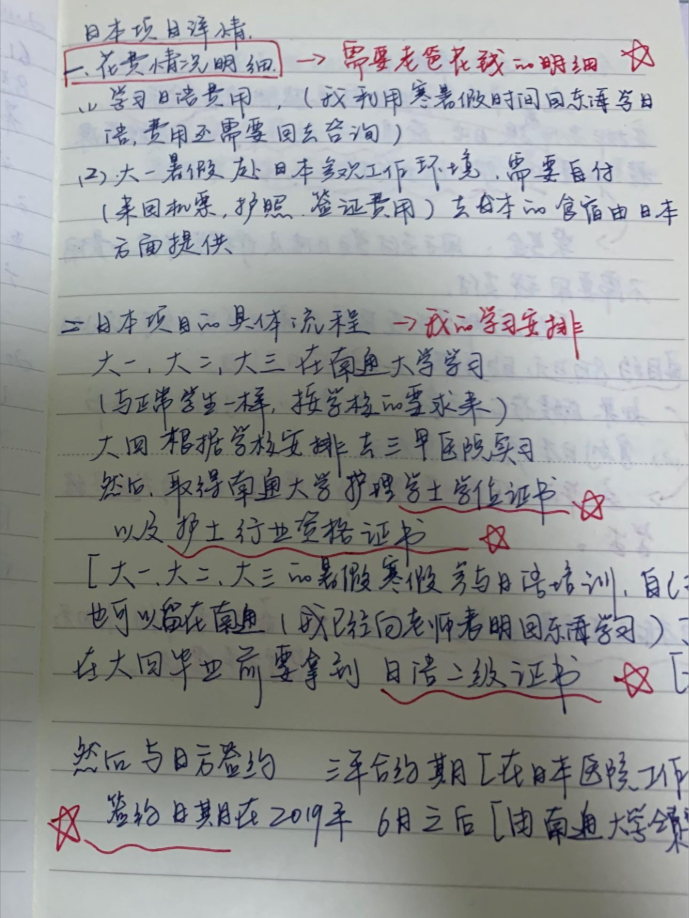 日本项目详情.
一.花费情况明细. → 需要老爸花钱的明细 ☆
(1) 学习日语费用，(我利用寒暑假时间回东海学日
语,费用还需要回去咨询)
(2)大一暑假处日本参观工作环境,需要自付
(来回机票,护照.签证费用)去日本的食宿由日本
方面提供
二日本项目的具体流程 → 我的学习安排
大一,大二,大三在南通大学学习
(与正常学生一样,按学校的要求来)
大四根据学校安排去三甲医院实习
然后,取得南通大学护理学士学位证书 ☆
以及护士行业资格证书 ☆
[大一、大二、大三的暑假寒假参与日语培训,自己
也可以留在南通(我已经向老师表明回东海学习)
在大四毕业前要拿到 日语二级证书 ☆ [
然后与日方签约 三年合约期[在日本医院工作
☆ 签约日期在2019年 6月之后[由南通大学